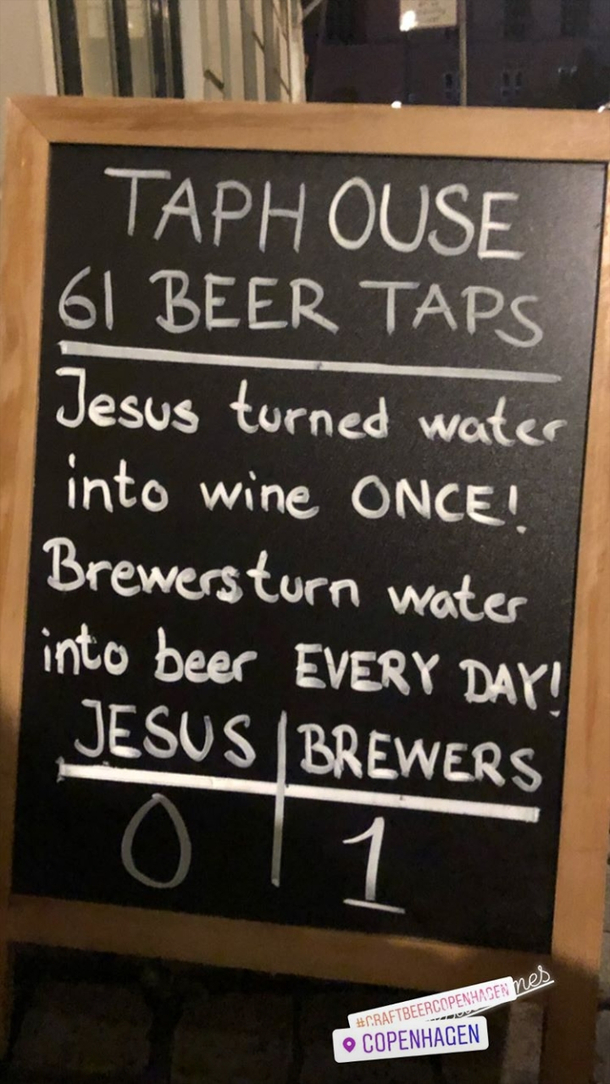 TAPHOUSE
61 BEER TAPS
Jesus turned water
into wine ONCE!
Brewers turn water
into beer EVERY DAY!
JESUS | BREWERS
0 1
#CRAFTBEERCOPENHAGEN
COPENHAGEN